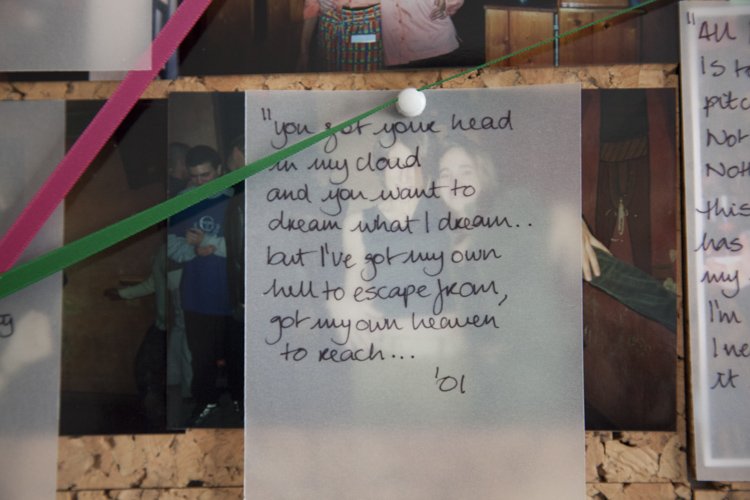 "you got your head
in my cloud
and you want to
dream what I dream..
but I've got my own
hell to escape from,
got my own heaven
to reach...
'01
"All
Is to
pitc
Not
Noth
this
has
my
I'm
I ne
it